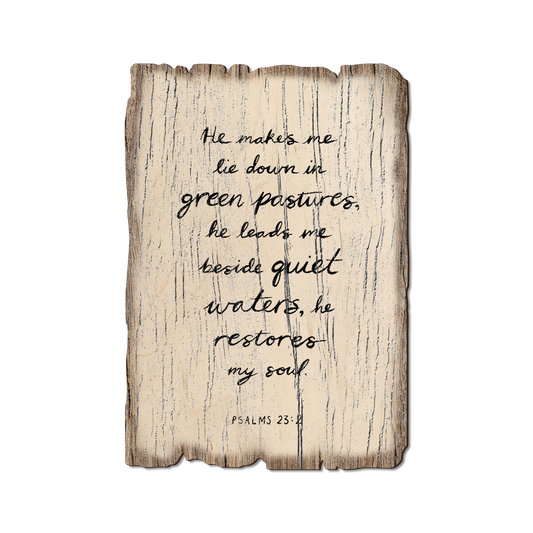 He makes me
lie down in
green pastures,
he leads me
beside quiet
waters, he
restores
my soul.
PSALMS 23:2